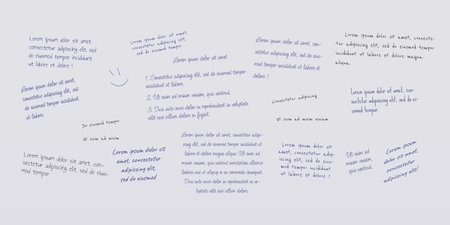 Lorem ipsum dolor sit amet,
consectetur adipiscing elit, sed
do eiusmod tempor incididunt
ut labore et dolore !
Lorem ipsum dolor sit amet,
consectetur adipiscing elit,
sed do eiusmod tempor
Lorem ipsum dolor sit amet,
consectetur adipiscing elit,
sed do eiusmod tempor
incididunt ut
labore et dolore.
Lorem ipsum dolor sit amet.
1. Consectetur adipiscing elit, sed do eiusmod tempor
incididunt.
2. Ut enim ad minim veniam, quis nostrud.
3. Duis aute irure dolor in reprehenderit in voluptate
velit esse cillum dolore eu fugiat.
Lorem ipsum dolor sit amet, con-
sectetur adipiscing elit, sed do
eiusmod tempor incididunt ut
labore et dolore
!
Lorem ipsum dolor sit amet, consectetur
adipiscing elit, sed do eiusmod tempor
incididunt ut labore et dolore magna
aliqua.
Lorem ipsum dolor sit amet,
consectetur adipiscing elit, sed
do eiusmod.
consectetur adipiscing
Ut enim ad minim veniam
In eiusmod tempor
Ut enim ad minim
Lorem ipsum dolor sit amet, con-
sectetur adipiscing elit, sed do eius-
mod tempor
Lorem ipsum dolor sit
amet, consectetur
adipiscing elit,
sed do eiusmod
Lorem ipsum dolor sit amet, consectetur
adipiscing elit, sed do eiusmod tempor incididunt ut
labore et dolore magna aliqua. Ut enim ad minim
veniam, quis nostrud exercitation ullamco
laboris nisi ut aliquip ex ea commodo consequat.
Duis aute irure dolor in reprehenderit in vo-
luptate velit esse cillum dolore.
Lorem ipsum dolor sit
amet, consectetur adipiscing
elit, sed do eiusmod
tempor incididunt ut
labore et dolore !
Ut enim ad
minim veniam,
quis nostrud.
Lorem ipsum
dolor sit amet,
consectetur
adipiscing elit!